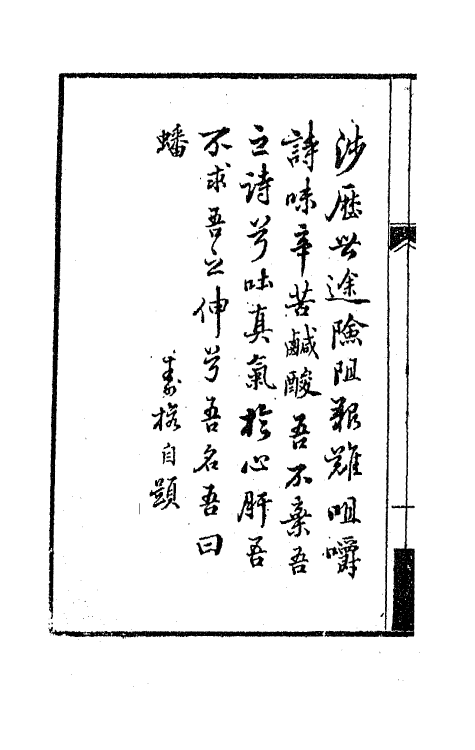 涉歷世途險阻艱難咀嚼
詩味辛苦鹹酸吾不棄吾
之詩兮吐真氣於心肝吾
不求吾之伸兮吾名吾曰
蟠
壽樵自題